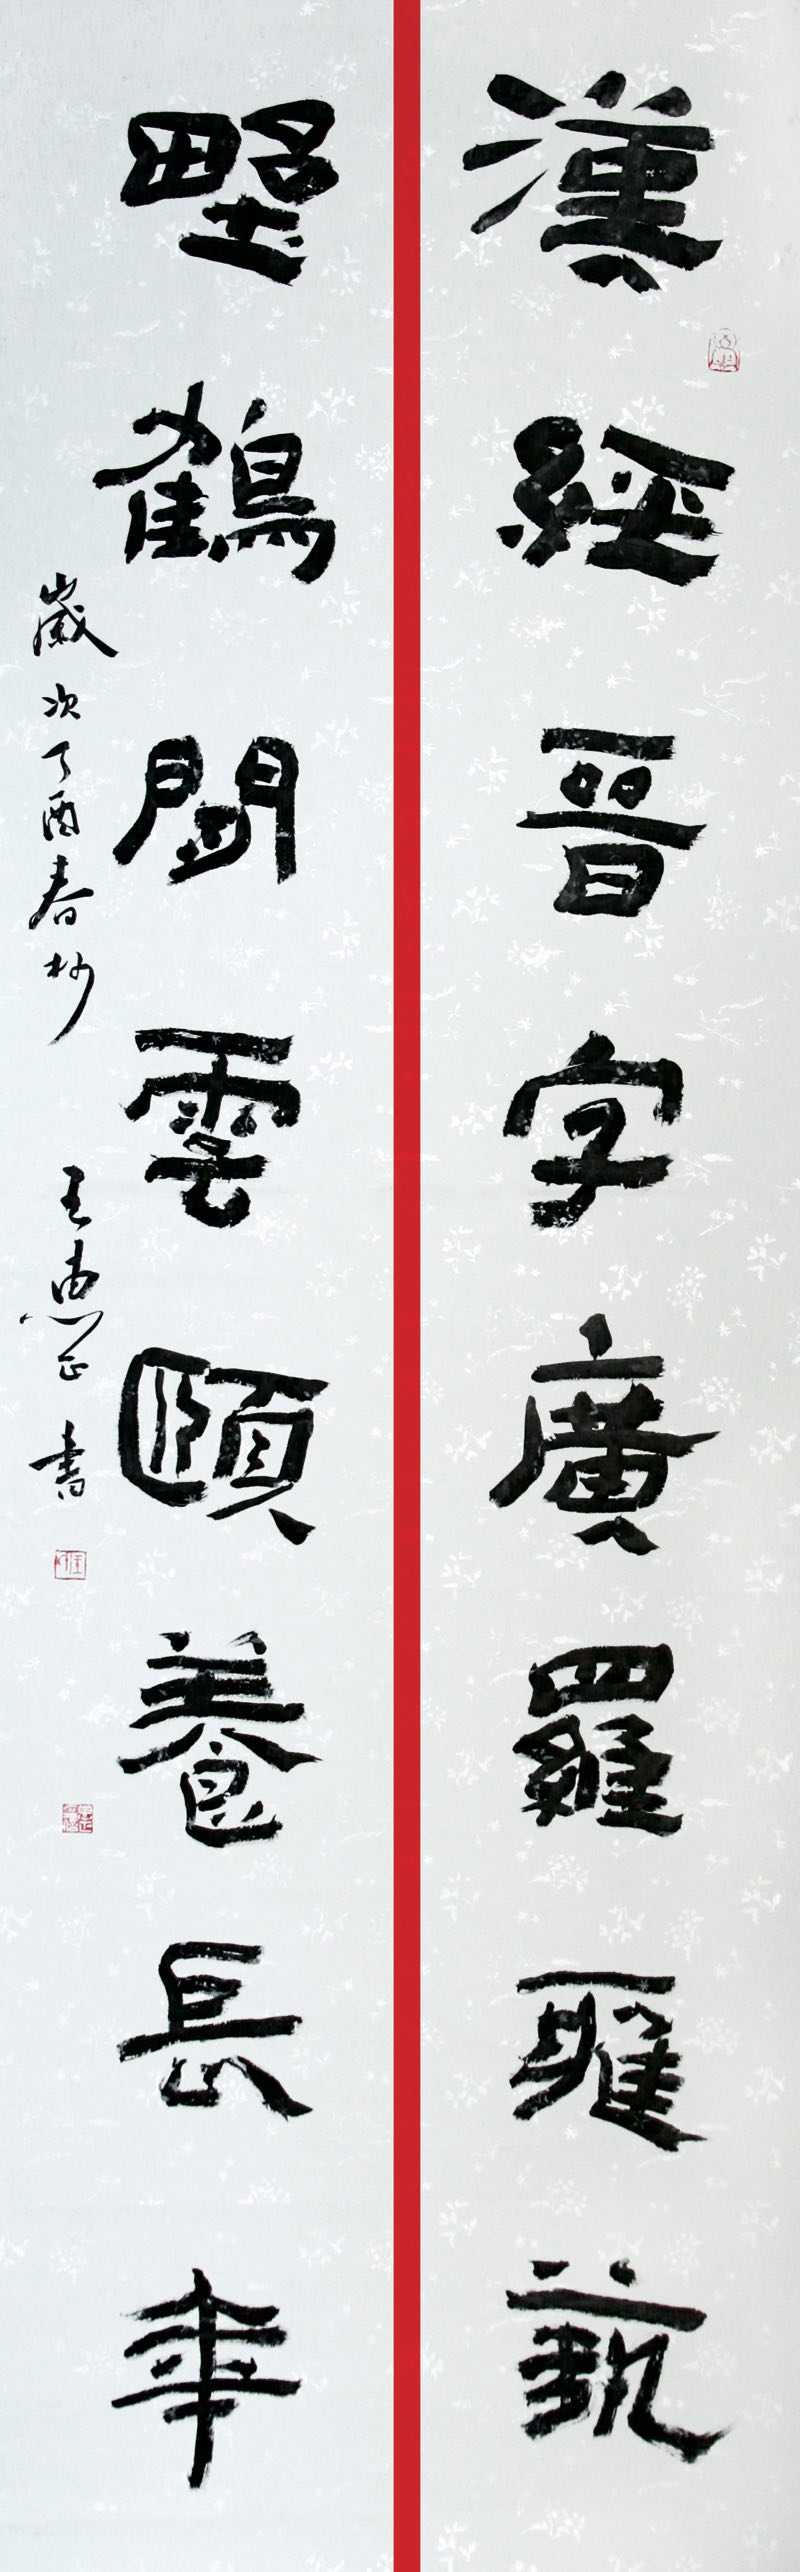 漢經晉字廣羅雅藝
野鶴閒雲頤養長華
歲次丁酉春杪
王惠正書